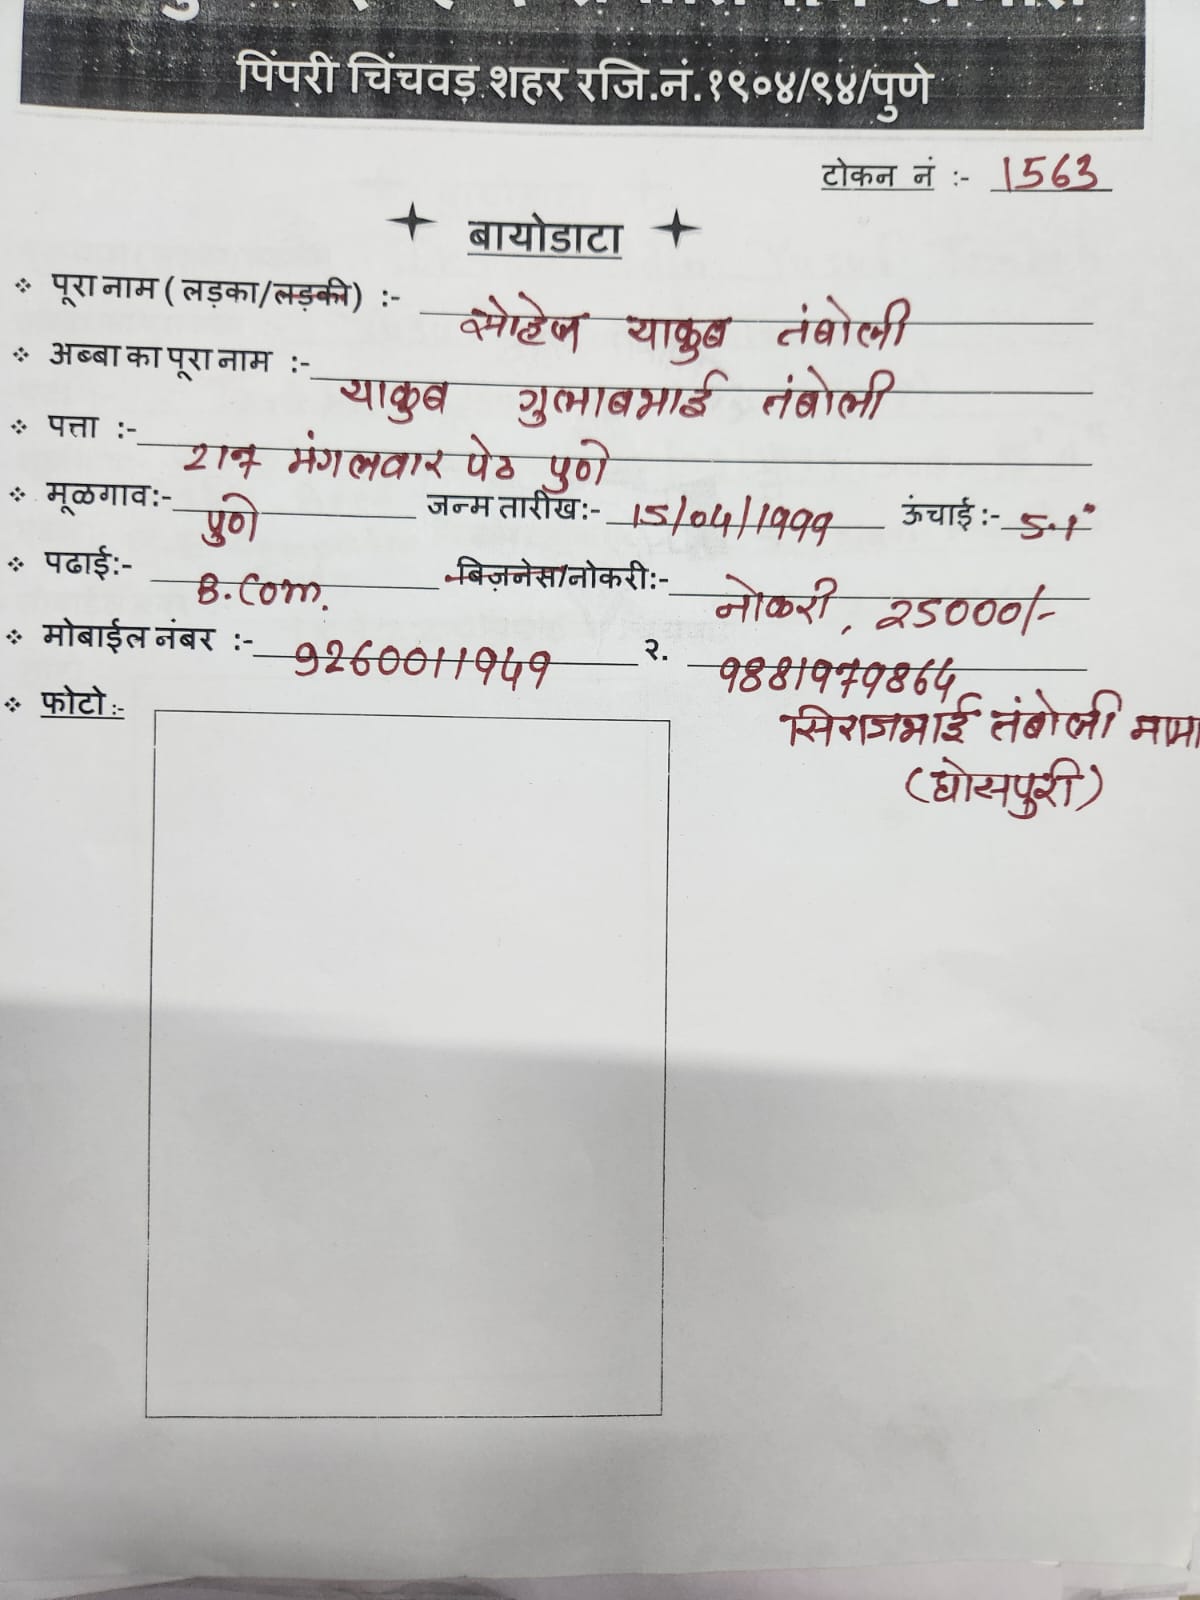 पिंपरी चिंचवड शहर रजि.नं.१९०४/९४/पुणे
टोकन नं :- 1563
बायोडाटा
❖ पूरा नाम ( लड़का/लड़की) :- सोहेल याकुब तंबोली
❖ अब्बा का पूरा नाम :- याकुब गुलाबभाई तंबोली
❖ पत्ता :- 217 मंगलवार पेठ पुणे
❖ मूळगाव:- पुणे जन्म तारीख:- 15/04/1999 ऊंचाई :- 5.1"
❖ पढाई:- B.Com. बिज़नेस/नोकरी:- नोकरी, 25000/-
❖ मोबाईल नंबर :- 9260011949 २. 9881979864
सिराजभाई तंबोली मामा
(घोसपुरी)
❖ फोटो :-